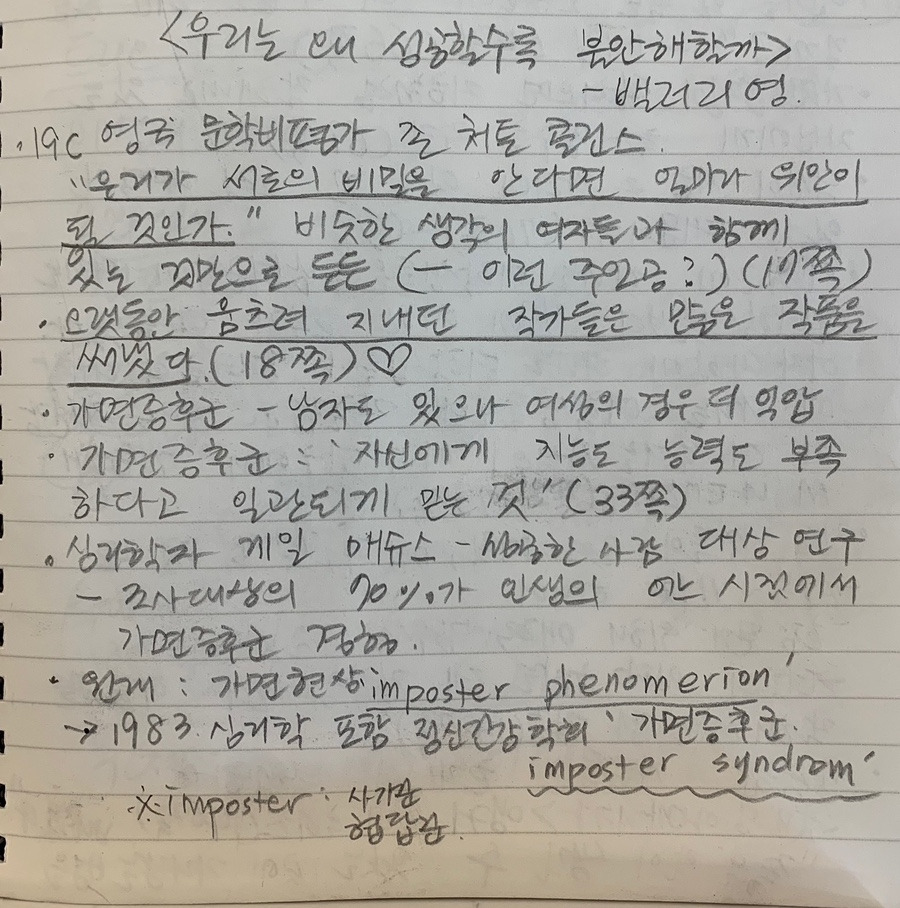 <우리는 왜 성공할수록 불안해할까>
- 밸러리 영.
· 19C 영국 문학비평가 존 처톤 콜린스.
"우리가 서로의 비밀을 안다면 얼마나 위안이
될 것인가." 비슷한 생각의 여자들과 함께
있는 것만으로 든든 (— 이런 주인공?) (17쪽)
· 오랫동안 움츠려 지내던 작가들은 많은 작품을
써냈다. (18쪽) ♡
· 가면증후군 - 남자도 있으나 여성의 경우 더 억압
· 가면증후군 : '자신에게 지능도 능력도 부족
하다고 일관되게 믿는 것" (33쪽)
· 심리학자 게일 매슈스 - 성공한 사람 대상 연구
- 조사대상의 70%가 인생의 어느 시점에서
가면증후군 경험.
· 원래 : 가면현상 imposter phenomerion'
→ 1983. 심리학 포함 정신건강학회 '가면증후군.
imposter syndrom'
※ imposter : 사기꾼
협잡꾼.